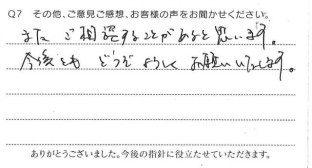 Q7 その他、ご意見ご感想、お客様の声をお聞かせください。
また ご相談することがあると思います。
今後とも どうぞよろしく お願いいたします。
ありがとうございました。今後の指針に役立たせていただきます。